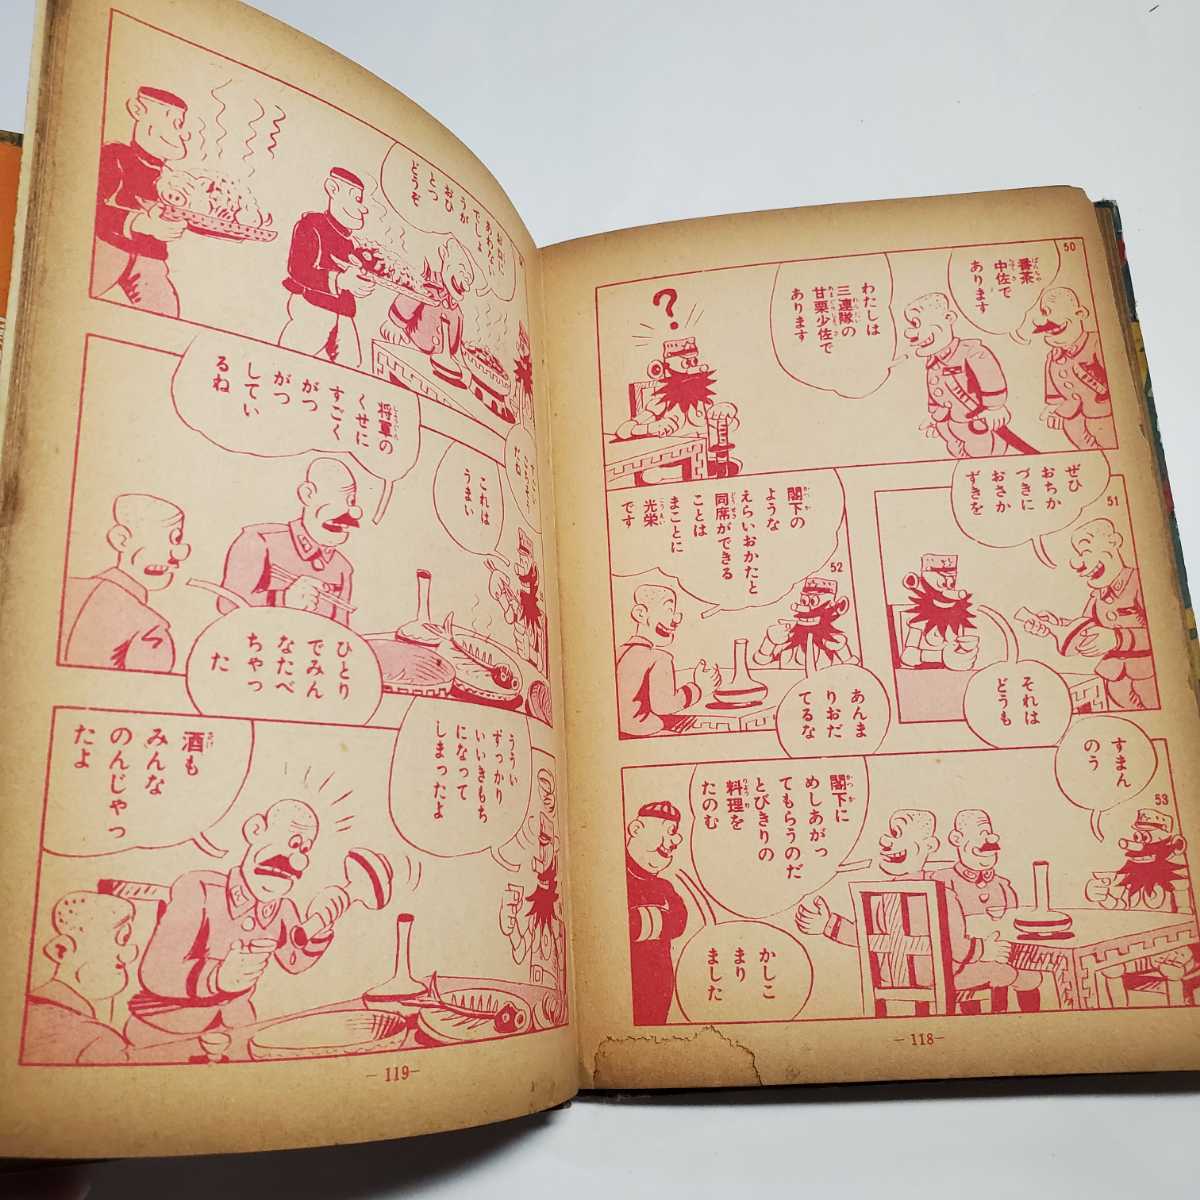 50
番茶
中佐で
あります
わたしは
三連隊の
甘栗少佐で
あります
?
51
ぜひ
おちか
づきに
おさか
ずきを
それは
どうも
52
閣下の
ような
えらいおかたと
同席ができる
ことは
まことに
光栄
です
あんま
りおだ
てるな
53
すまん
のう
閣下に
めしあがっ
てもらうのだ
とびきりの
料理を
たのむ
かしこ
まり
ました
-118-
お口に
あわんた
でしょ
うが
おひ
とつ
どうぞ
これは
うまい
将軍の
くせに
すごく
がつ
がつ
してい
るね
ひとり
でみん
なたべ
ちゃっ
た
ううい
ずっかり
いいきもち
になって
しまったよ
酒も
みんな
のんじゃっ
たよ
-119-